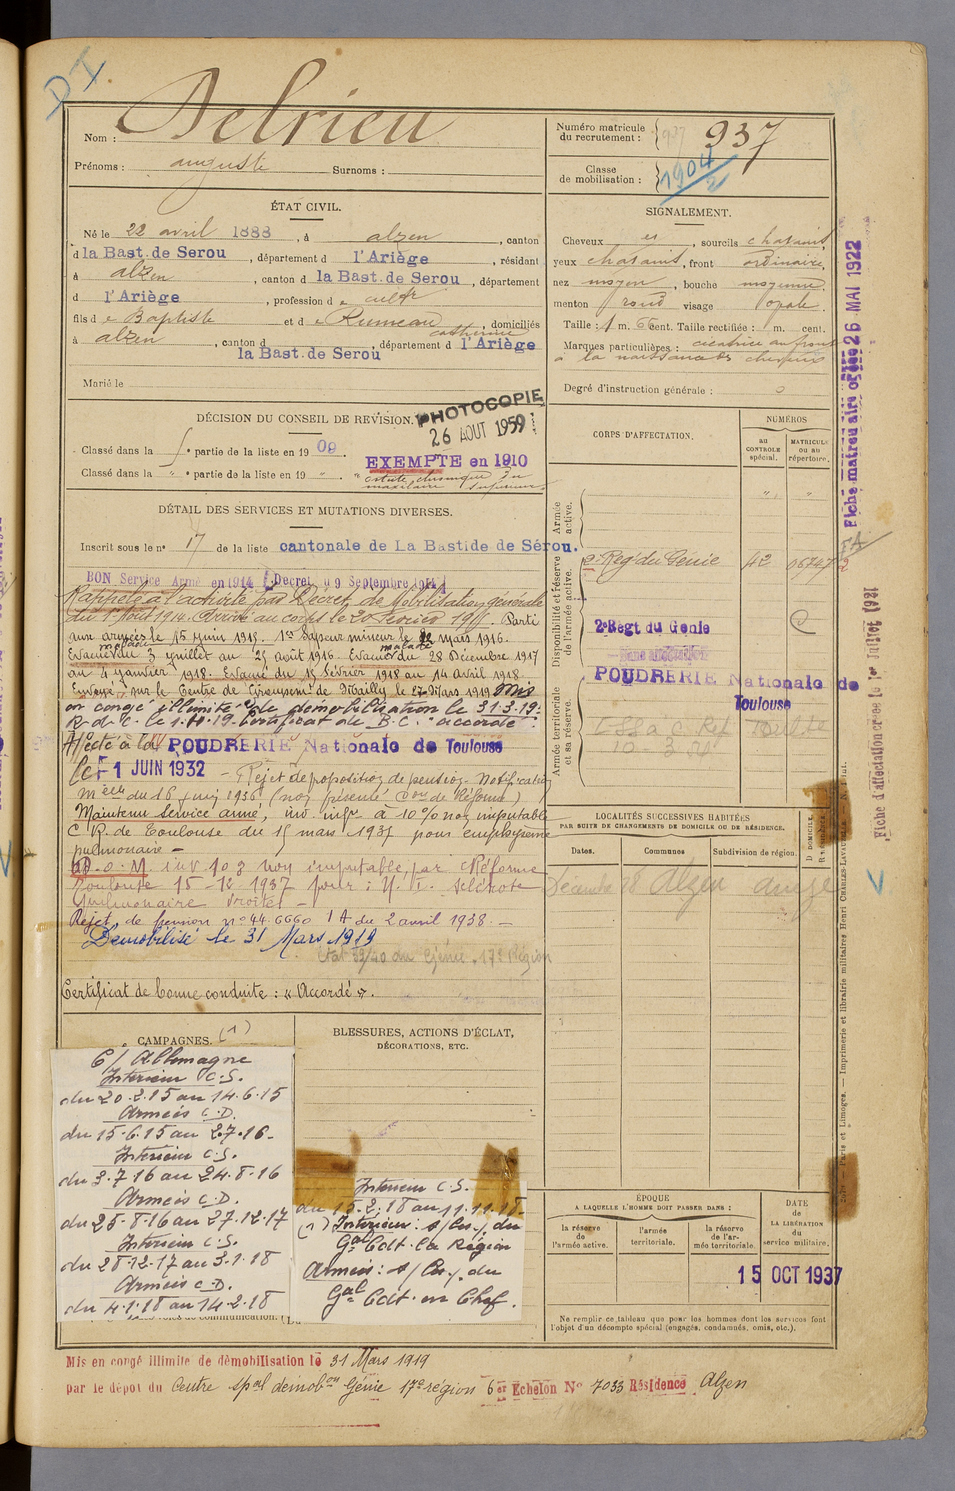 DI
Nom : Delrieu
Prénoms : auguste Surnoms :
Numéro matricule du recrutement : 937 937
Classe de mobilisation : 1904/2
ÉTAT CIVIL.
Né le 22 avril 1888, à alzen, canton
d la Bast. de Serou, département d l'Ariège, résidant
à alzen, canton d la Bast. de Serou, département
d l'Ariège, profession de cultr
fils de Baptiste et de Rumeau catherine, domiciliés
à alzen, canton d la Bast. de Serou, département d l'Ariège
Marié le
SIGNALEMENT.
Cheveux et, sourcils chatains,
yeux chatains, front ordinaire,
nez moyen, bouche moyenne,
menton rond visage ovale.
Taille : 1 m. 66 cent. Taille rectifiée : m. cent.
Marques particulières : cicatrice au front
à la naissance des cheveux
Degré d'instruction générale : 0
DÉCISION DU CONSEIL DE REVISION.
PHOTOCOPIE
26 AOUT 1959
Classé dans la 1 e partie de la liste en 1909.
EXEMPTE en 1910
Classé dans la " e partie de la liste en 19 "
ostéite chronique du
maxillaire supérieur
DÉTAIL DES SERVICES ET MUTATIONS DIVERSES.
Inscrit sous le no 17 de la liste cantonale de La Bastide de Sérou.
BON Service Armé en 1914 (Decret du 9 Septembre 1914)
Rappelé à l'activité par Décret de Mobilisation générale
du 1er Août 1914. Arrivé au corps le 20 Février 1915. Parti
aux armées le 15 juin 1915. 1er Sapeur mineur le 22 mars 1916.
Evacué malade du 3 juillet au 25 août 1916. Evacué malade du 28 Décembre 1917
au 4 janvier 1918. Evacué du 15 février 1918 au 14 avril 1918.
Envoyé sur le Centre de 27 Mars 1919 Mis
en congé illimité de démobilisation le 31.3.19.
R. d. C. le 1.4.19. Certificat de B.C. "accordé"
Affecté à la POUDRERIE Nationale de Toulouse
le 1 JUIN 1932 - Rejet de proposition de pension. Notification
Melle du 16 juin 1936 (non présenté Con de Réforme)
Maintenu service armé, inv. infre à 10% non imputable
C. R. de Toulouse du 15 mars 1937 pour emphysème
pulmonaire -
P. O. M. inv. 10% non imputable par Réforme
Toulouse 15-12 1937 pour : sclérose
pulmonaire droite -
Rejet de pension no 44.6660 1 A du 2 avril 1938. -
Démobilisé le 31 Mars 1919
Etat 39/40 du Génie. 17e Région
Certificat de bonne conduite : « Accordé ».
CORPS D'AFFECTATION.
NUMÉROS
au CONTROLE spécial.
MATRICULE ou au répertoire.
Armée active.
Disponibilité et réserve de l'armée active.
Armée territoriale et sa réserve.
2e Reg. du Génie 42 16747
2e Regt du Genie
Sans affectation
POUDRERIE Nationale de
Toulouse
LOCALITÉS SUCCESSIVES HABITÉES
PAR SUITE DE CHANGEMENTS DE DOMICILE OU DE RÉSIDENCE.
Dates. Communes Subdivision de région.
D DOMICILE,
R RÉSIDENCE.
Alzen
CAMPAGNES. (1)
C/ Allemagne
Interieur C.S.
du 20.2.15 au 14.6.15
Armées C.D.
du 15.6.15 au 2.7.16-
Interieur C.S.
du 3.7.16 au 24.8.16
Armées C.D.
du 25.8.16 au 27.12.17
Interieur C.S.
du 28.12.17 au 3.1.18
Armées C.D.
du 4.1.18 au 14.2.18
BLESSURES, ACTIONS D'ÉCLAT,
DÉCORATIONS, ETC.
Interieur C.S.
du 15.2.18 au 11.11.18.
(1) Interieur : s/Cn./. du
Gal Cdt. la Région
Armées : s/Cn./. du
Gal Cdt. en Chef.
ÉPOQUE
A LAQUELLE L'HOMME DOIT PASSER DANS :
la réserve de l'armée active.
l'armée territoriale.
la réserve de l'armée territoriale.
DATE de LA LIBÉRATION du service militaire.
15 OCT 1937
Ne remplir ce tableau que pour les hommes dont les services font
l'objet d'un décompte spécial (engagés, condamnés, omis, etc.).
Mis en congé illimité de démobilisation le 31 Mars 1919
par le dépôt du Centre spal demobon Génie 17e région 6er Echelon No 7033 Résidence Alzen
Fiche matriculaire créée 26 MAI 1922
Fiche d'affectation créée le 1er Juillet 1931
Paris et Limoges. — Imprimerie et librairie militaires Henri CHARLES-LAVAUZELLE.